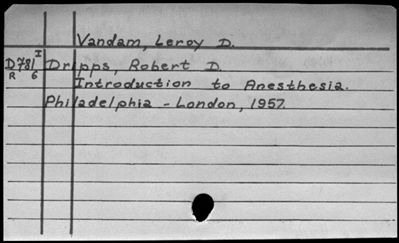 Vandam, Leroy D.
I
D781 Dripps, Robert D.
R 6 Introduction to Anesthesia.
Philadelphia - London, 1957.